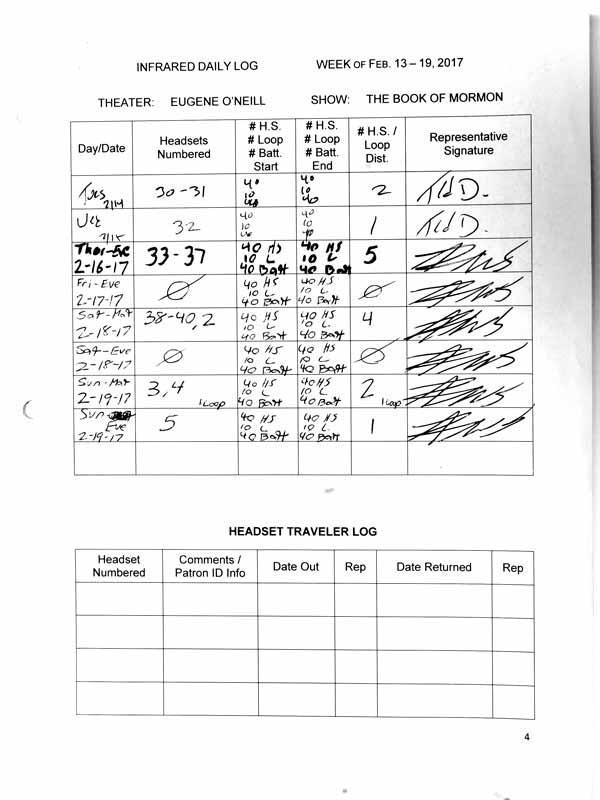 INFRARED DAILY LOG WEEK OF FEB. 13 – 19, 2017
THEATER: EUGENE O'NEILL SHOW: THE BOOK OF MORMON
Day/Date
Headsets
Numbered
# H.S.
# Loop
# Batt.
Start
# H.S.
# Loop
# Batt.
End
# H.S. /
Loop
Dist.
Representative
Signature
Tues
2/14
30-31
40
10
40
40
10
40
2
Ted D.
2/15
32
40
10
40
10
1
Ted D.
Thur-Eve
2-16-17
33-37
40 HS
10 L
40 Batt
40 HS
10 L
40 Batt
5
Fri-Eve
2-17-17
Ø
40 HS
10 L
40 Batt
40 HS
10 L
40 Batt
Ø
Sat-Mat
2-18-17
38-40, 2
40 HS
10 L
40 Batt
40 HS
10 L.
40 Batt
4
Sat-Eve
2-18-17
Ø
40 HS
10 L
40 Batt
40 HS
10 L
40 Batt
Ø
Sun-Mat
2-19-17
3, 4
1 Loop
40 HS
10 L
40 Batt
40 HS
10 L.
40 Batt
2
1 Loop
Sun
Eve
2-19-17
5
40 HS
10 L
40 Batt
40 HS
10 L.
40 Batt
1
HEADSET TRAVELER LOG
Headset
Numbered
Comments /
Patron ID Info
Date Out
Rep
Date Returned
Rep
4